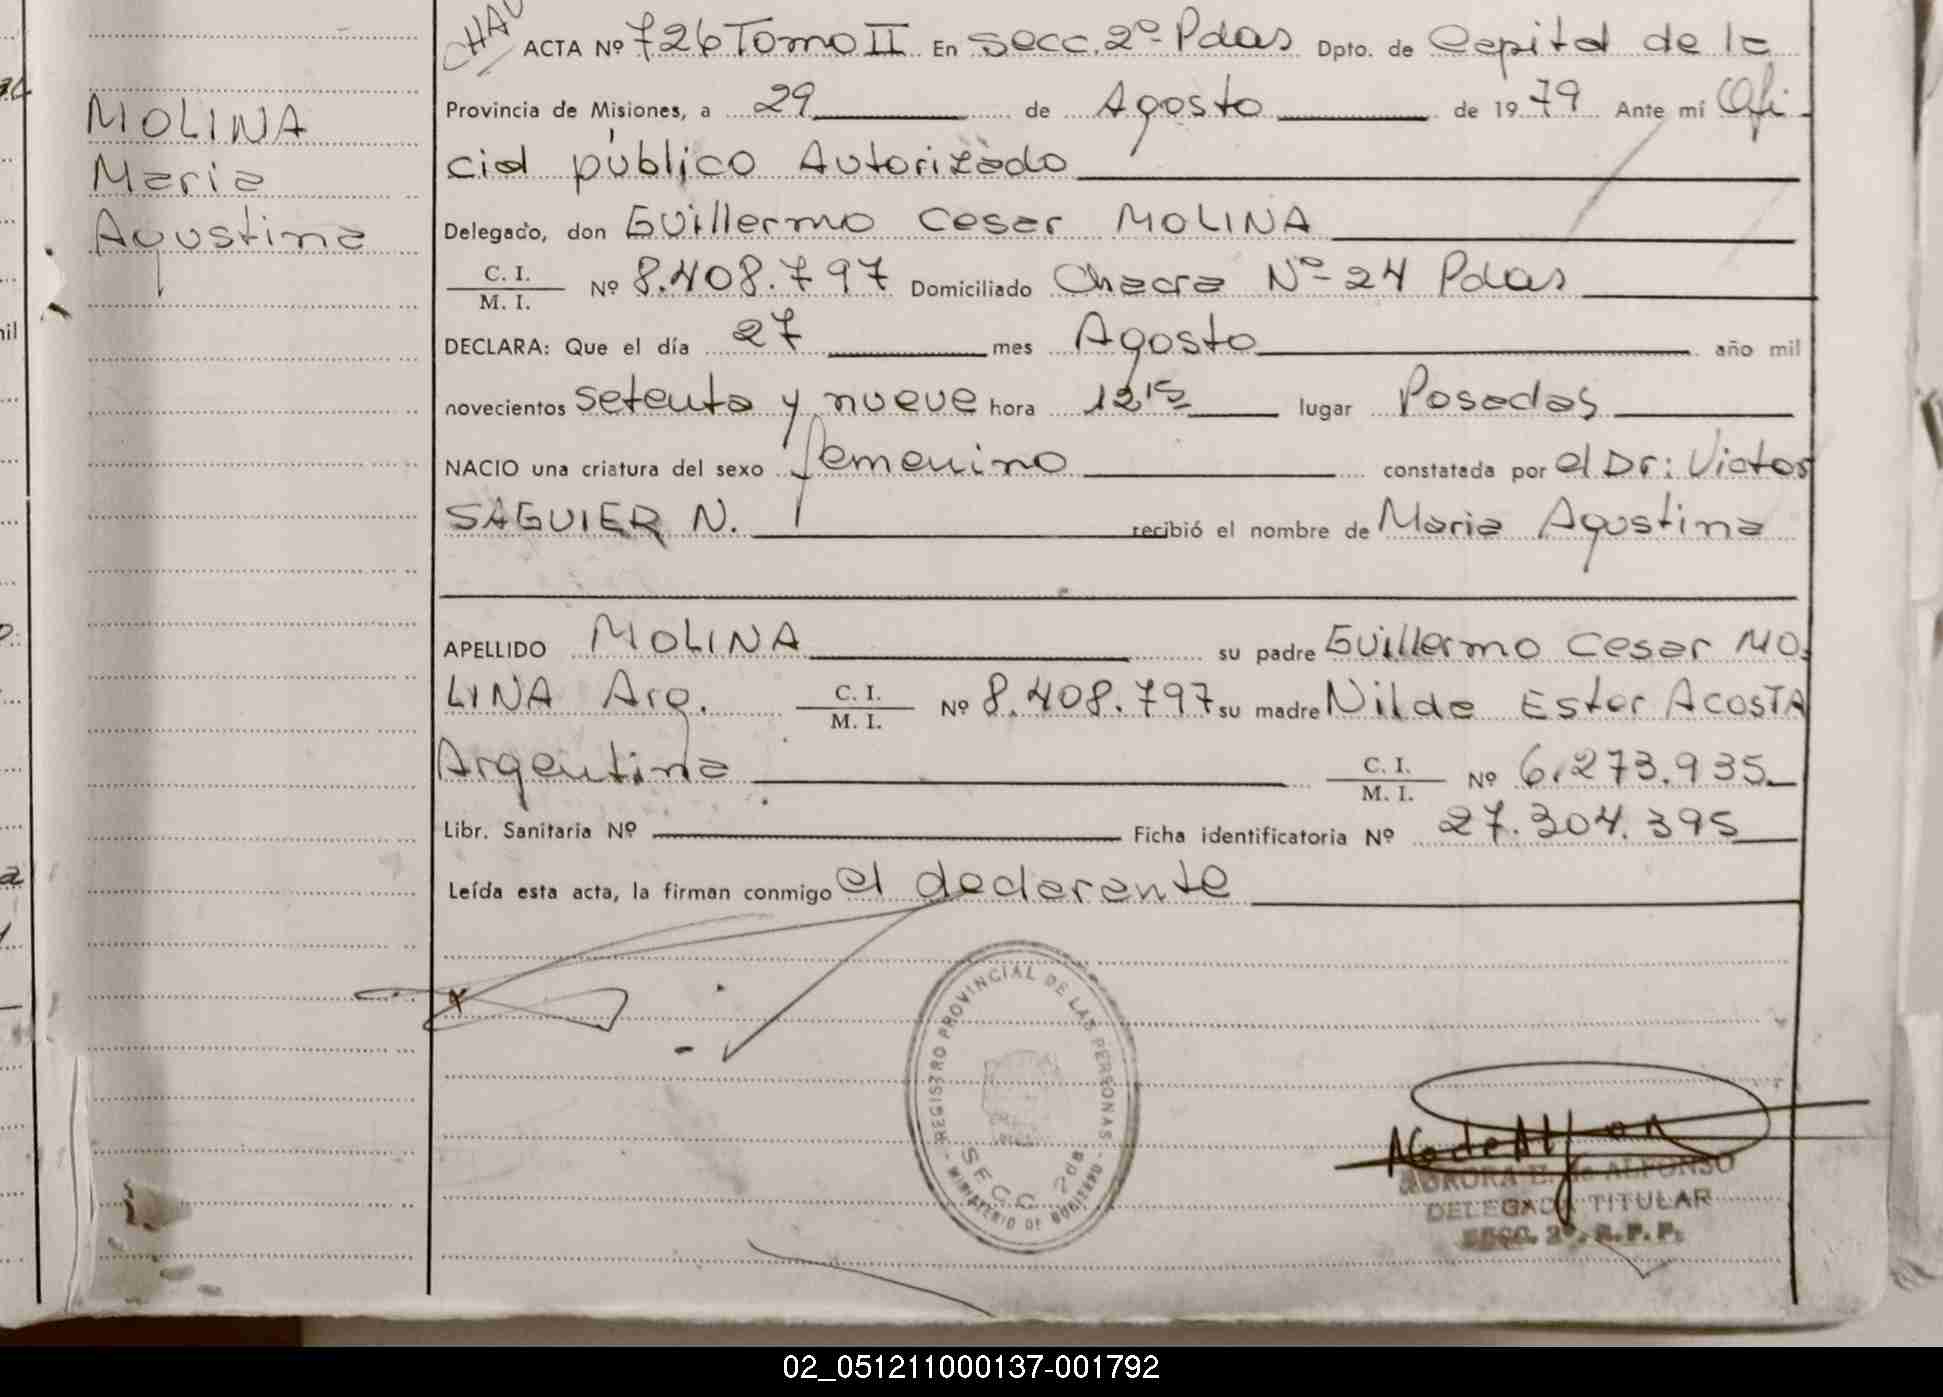 ACTA Nº 726 Tomo II En secc. 2º Pdas Dpto. de Capital de la
MOLINA
Maria
Agustina
Provincia de Misiones, a 29 de Agosto de 1979 Ante mí Ofi
cial público Autorizado
Delegado, don Guillermo Cesar MOLINA
C. I.
M. I. Nº 8.408.797 Domiciliado Chacra Nº 24 Pdas
DECLARA: Que el día 27 mes Agosto año mil
novecientos setenta y nueve hora 12 15 lugar Posadas
NACIO una criatura del sexo femenino constatada por el Dr: Victor
SAGUIER N. recibió el nombre de Maria Agustina
APELLIDO MOLINA su padre Guillermo Cesar MO
LINA Arg. C. I.
M. I. Nº 8.408.797 su madre Nilda Ester ACOSTA
Argentina C. I.
M. I. Nº 6.273.935
Libr. Sanitaria Nº Ficha identificatoria Nº 27.304.395
Leída esta acta, la firman conmigo el declarante
REGISTRO PROVINCIAL DE LAS PERSONAS
SECC 2da
MINISTERIO DE GOBIERNO
AURORA E. de ALFONSO
DELEGADA TITULAR
SECC. 2ª. R.P.P.
02_051211000137-001792